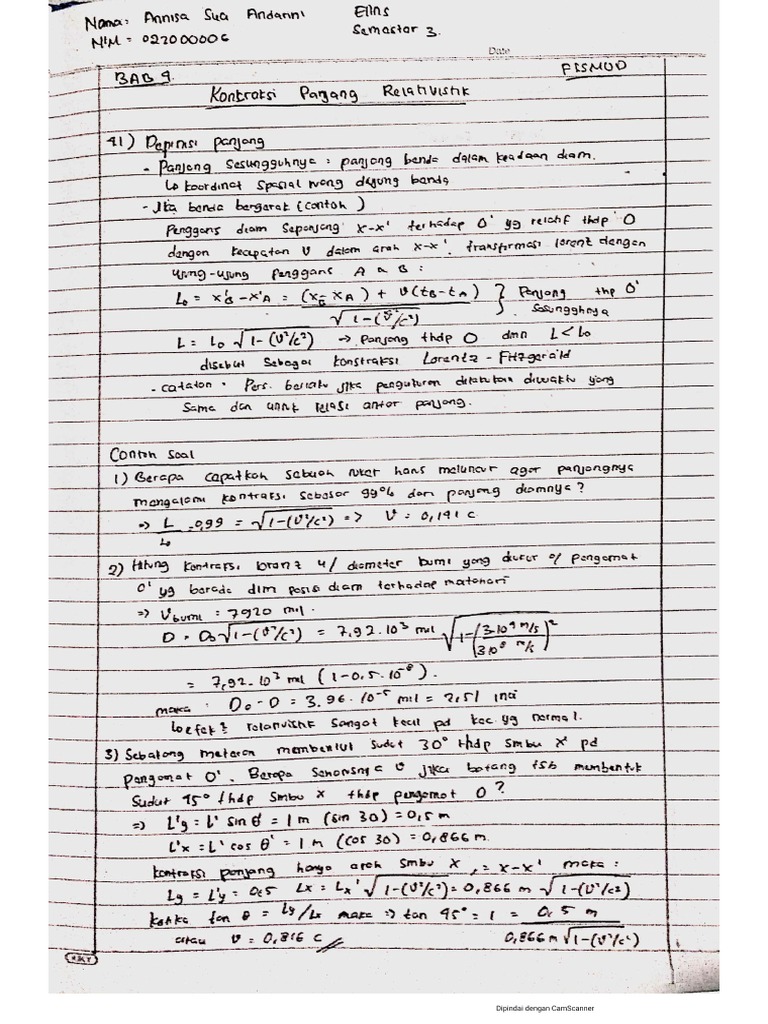 Nama: Annisa Sua Andarini Elins
NIM = 022000006 Semester 3.
Date
BAB 9. FISMOD
Kontraksi Panjang Relativistik
41) Depinisi panjang
- Panjang Sesungguhnya : panjang benda dalam keadaan diam.
↳ koordinat spasial ujung benda
- Jika benda bergerak (contoh)
Penggaris diam sepanjang x-x' terhadap O' yg relatif thdp O
dengan kecepatan v dalam arah x-x'. transformasi lorentz dengan
ujung-ujung penggaris A & B :
L₀ = x'B - x'A = (xB - xA) + v(tB - tA) / √1-(v²/c²) } Panjang thp O' sesungguhnya
L = L₀ √1-(v²/c²) → panjang thdp O dmn L < L₀
disebut Sebagai konstraksi Lorentz - Fitzgerald
- catatan : Pers. berlaku jika pengukuran dilakukan diwaktu yang
sama dan untuk relasi antar panjang.
Contoh Soal
1) Berapa capatkah sebuah roket harus meluncur agar panjangnya
mengalami kontraksi sebesar 99% dari panjang diamnya ?
⇒ L/L₀ = 0,99 = √1-(v²/c²) => v = 0,141 c.
2) Hitung kontraksi lorenz u/ diameter bumi yang diukur o/ pengamat
O' yg berada dlm posisi diam terhadap matahari
⇒ Vbumi : 7920 mil.
D = D₀√1-(v²/c²) = 7,92.10³ mil √1-(3.10⁴ m/s / 3.10⁸ m/s)²
= 7,92.10³ mil (1-0,5.10⁻⁸).
maka : D₀ - D = 3.96.10⁻⁵ mil = 2,51 inci
↳ efek² relativistik sangat kecil pd kec. yg normal.
3) Sebatang meteran membentuk sudut 30° thdp smbu x' pd
pengamat O'. Berapa seharusnya v jika batang tsb membentuk
sudut 45° thdp smbu x thdp pengamat O ?
⇒ L'y = L' sin θ' = 1 m (sin 30) = 0,5 m
L'x = L' cos θ' = 1 m (cos 30) = 0,866 m.
kontraksi panjang hanya arah smbu x, = x-x' maka :
Ly = L'y = 0,5 Lx = Lx' √1-(v²/c²) = 0,866 m √1-(v²/c²)
Ketika tan θ = Ly/Lx maka ⇒ tan 45° = 1 = 0,5 m / 0,866 m √1-(v²/c²)
atau v = 0,816 c
Dipindai dengan CamScanner